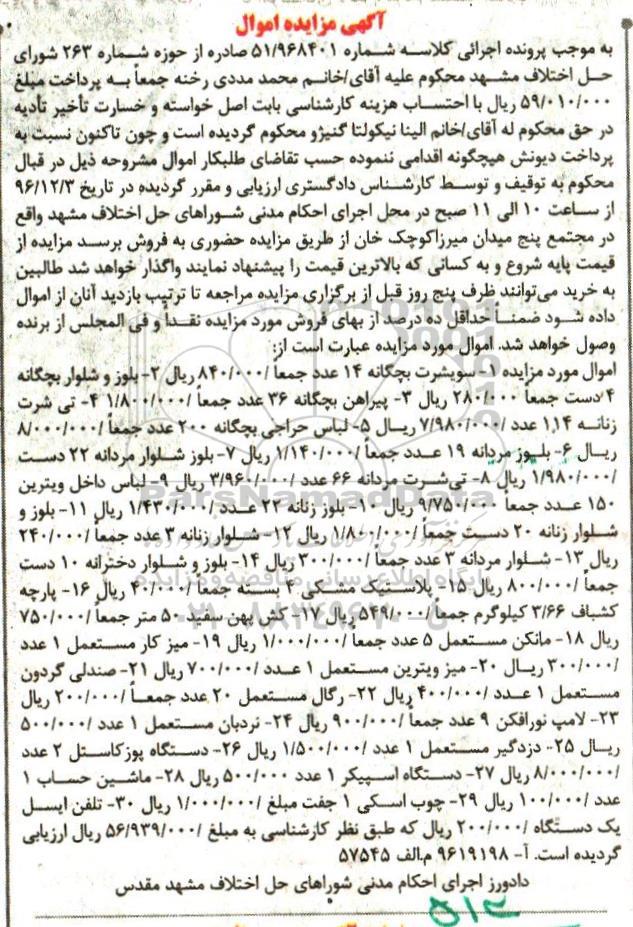 آگهی مزایده اموال
به موجب پرونده اجرائی کلاسه شماره ۵۱/۹۶۸۴۰۱ صادره از حوزه شماره ۲۶۳ شورای
حل اختلاف مشهد محکوم علیه آقای/خانم محمد مددی رخنه جمعاً به پرداخت مبلغ
۵۹/۰۱۰/۰۰۰ ریال با احتساب هزینه کارشناسی بابت اصل خواسته و خسارت تأخیر تأدیه
در حق محکوم له آقای/خانم الینا نیکولتا گنیژو محکوم گردیده است و چون تاکنون نسبت به
پرداخت دیونش هیچگونه اقدامی ننموده حسب تقاضای طلبکار اموال مشروحه ذیل در قبال
محکوم به توقیف و توسط کارشناس دادگستری ارزیابی و مقرر گردیده در تاریخ ۹۶/۱۲/۳
از ساعت ۱۰ الی ۱۱ صبح در محل اجرای احکام مدنی شوراهای حل اختلاف مشهد واقع
در مجتمع پنج میدان میرزاکوچک خان از طریق مزایده حضوری به فروش برسد مزایده از
قیمت پایه شروع و به کسانی که بالاترین قیمت را پیشنهاد نمایند واگذار خواهد شد طالبین
به خرید می‌توانند ظرف پنج روز قبل از برگزاری مزایده مراجعه تا ترتیب بازدید آنان از اموال
داده شود ضمناً حداقل ده درصد از بهای فروش مورد مزایده نقداً و فی المجلس از برنده
وصول خواهد شد. اموال مورد مزایده عبارت است از:
اموال مورد مزایده ۱- سویشرت بچگانه ۱۴ عدد جمعاً /۸۴۰/۰۰۰ ریال ۲- بلوز و شلوار بچگانه
۴ دست جمعاً ۲۸۰/۰۰۰ ریال ۳- پیراهن بچگانه ۳۶ عدد جمعاً /۱/۸۰۰/۰۰۰ ۴- تی شرت
زنانه ۱,۱۴ عدد /۷/۹۸۰/۰۰۰ ریال ۵- لباس حراجی بچگانه ۲۰۰ عدد جمعاً /۸/۰۰۰/۰۰۰
ریال ۶- بلوز مردانه ۱۹ عدد جمعاً /۱/۱۴۰/۰۰۰ ریال ۷- بلوز شلوار مردانه ۲۲ دست
/۱/۹۸۰/۰۰۰ ریال ۸- تی‌شرت مردانه ۶۶ عدد /۳/۹۶۰/۰۰۰ ریال ۹- لباس داخل ویترین
۱۵۰ عدد جمعاً ۹/۷۵۰/۰۰۰ ریال ۱۰- بلوز زنانه ۲۲ عدد /۱/۴۳۰/۰۰۰ ریال ۱۱- بلوز و
شلوار زنانه ۲۰ دست جمعاً /۱/۸۰۰/۰۰۰ ریال ۱۲- شلوار زنانه ۳ عدد جمعاً /۲۴۰/۰۰۰
ریال ۱۳- شلوار مردانه ۳ عدد جمعاً /۳۰۰/۰۰۰ ریال ۱۴- بلوز و شلوار دخترانه ۱۰ دست
جمعاً /۸۰۰/۰۰۰ ریال ۱۵- پلاستیک مشکی ۴ بسته جمعاً /۴۰/۰۰۰ ریال ۱۶- پارچه
کشباف ۳/۶۶ کیلوگرم جمعاً /۵۴۹/۰۰۰ ریال ۱۷- کش پهن سفید ۵۰ متر جمعاً /۷۵۰/۰۰۰
ریال ۱۸- مانکن مستعمل ۵ عدد جمعاً /۱/۰۰۰/۰۰۰ ریال ۱۹- میز کار مستعمل ۱ عدد
/۳۰۰/۰۰۰ ریال ۲۰- میز ویترین مستعمل ۱ عدد /۷۰۰/۰۰۰ ریال ۲۱- صندلی گردون
مستعمل ۱ عدد /۴۰۰/۰۰۰ ریال ۲۲- رگال مستعمل ۲۰ عدد جمعاً /۲۰۰/۰۰۰ ریال
۲۳- لامپ نورافکن ۹ عدد جمعاً /۹۰۰/۰۰۰ ریال ۲۴- نردبان مستعمل ۱ عدد /۵۰۰/۰۰۰
ریال ۲۵- دزدگیر مستعمل ۱ عدد /۱/۵۰۰/۰۰۰ ریال ۲۶- دستگاه پوزکاستل ۲ عدد
/۸/۰۰۰/۰۰۰ ریال ۲۷- دستگاه اسپیکر ۱ عدد ۵۰۰/۰۰۰ ریال ۲۸- ماشین حساب ۱
عدد /۱۰۰/۰۰۰ ریال ۲۹- چوب اسکی ۱ جفت مبلغ /۱/۰۰۰/۰۰۰ ریال ۳۰- تلفن ایسل
یک دستگاه /۲۰۰/۰۰۰ ریال که طبق نظر کارشناسی به مبلغ /۵۶/۹۳۹/۰۰۰ ریال ارزیابی
گردیده است. آ- ۹۶۱۹۱۹۸ م.الف ۵۷۵۴۵
دادورز اجرای احکام مدنی شوراهای حل اختلاف مشهد مقدس
ParsNamadData
پایگاه اطلاع رسانی مناقصه و مزایده
۰۲۱-۸۸۳۴۹۶۷۰-۵